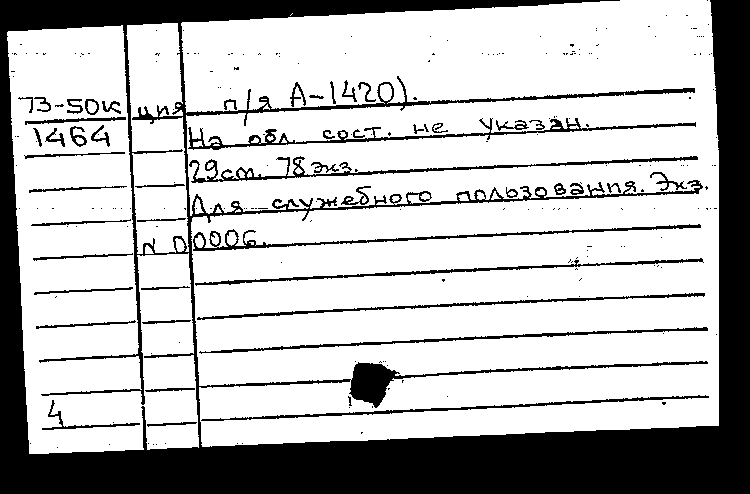 73-50к ция п/я А-1420).
1464 На обл. сост. не указан.
29см. 78 экз.
Для служебного пользования. Экз.
N 00006.
4